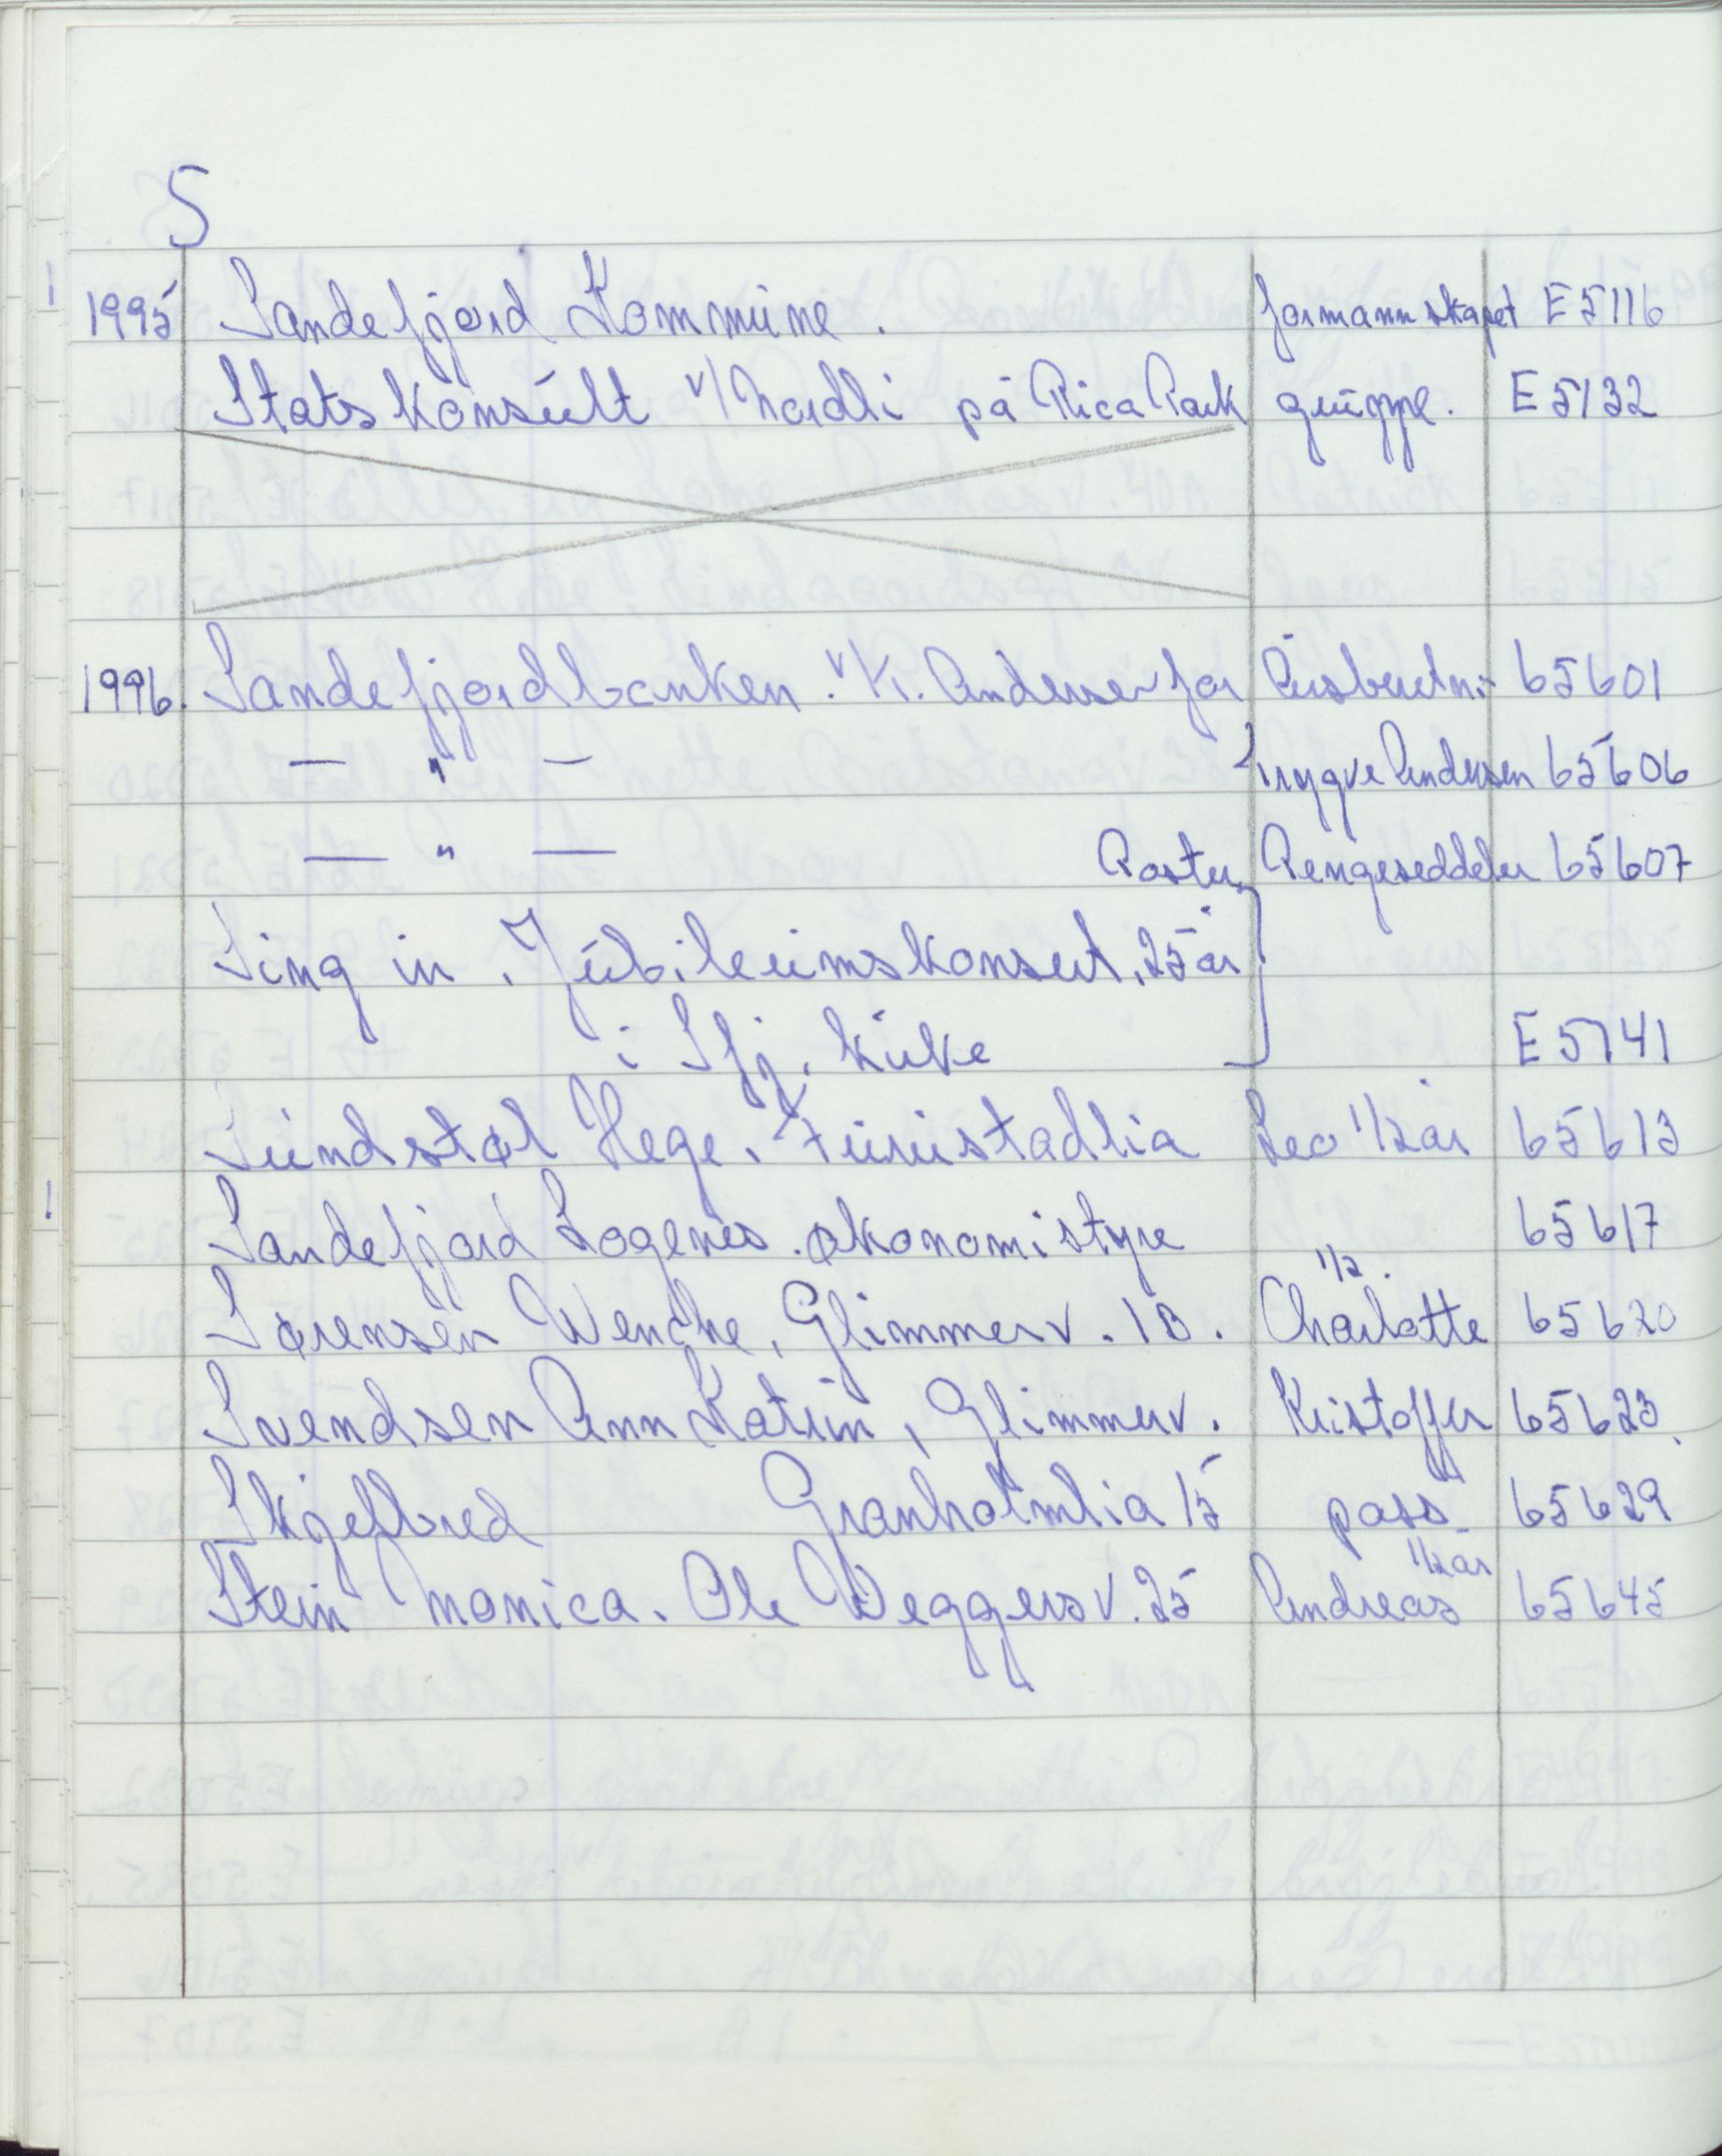 S
1995 Sandefjord Kommune. formannskapet E5116
Statskonsult v/Nordli på Rica Park gruppe. E5132
1996. Sandefjordbanken. v/K. Andersen for Årsberetn. 65601
— " — Trygve Andersen 65606
— " — Poster Pengesedler 65607
Sing in. Jubileumskonsert, 25 år
i Sfj. kirke E5141
Sundstøl Hege. Furustadlia Leo 1/2 år 65613
Sandefjord Logenes. økonomistyre 65617
1/2.
Sørensen Wenche, Glimmerv. 1B. Charlotte 65620
Svendsen Ann Katrin, Glimmerv. Kristoffer 65623.
Skjelbred Granholmlia 15 pass 65629
1/2 år
Stein Monica. Ole Weggersv. 25 Andreas 65645